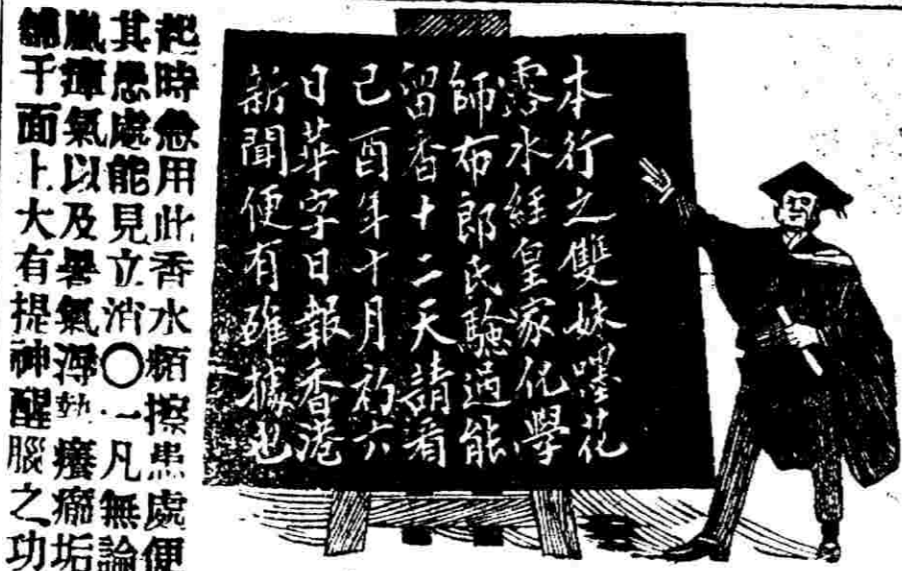 本行之雙妹嚜花
露水經皇家化學
師布郎氏驗過能
留香十二天請看
己酉年十月初六
日華字日報香港
新聞便有確據也
起時急用此香水頻擦患處便
其患處能見立消〇一凡無論
嵐瘴氣以及暑氣熱癢垢
面上大有提神醒腦之功